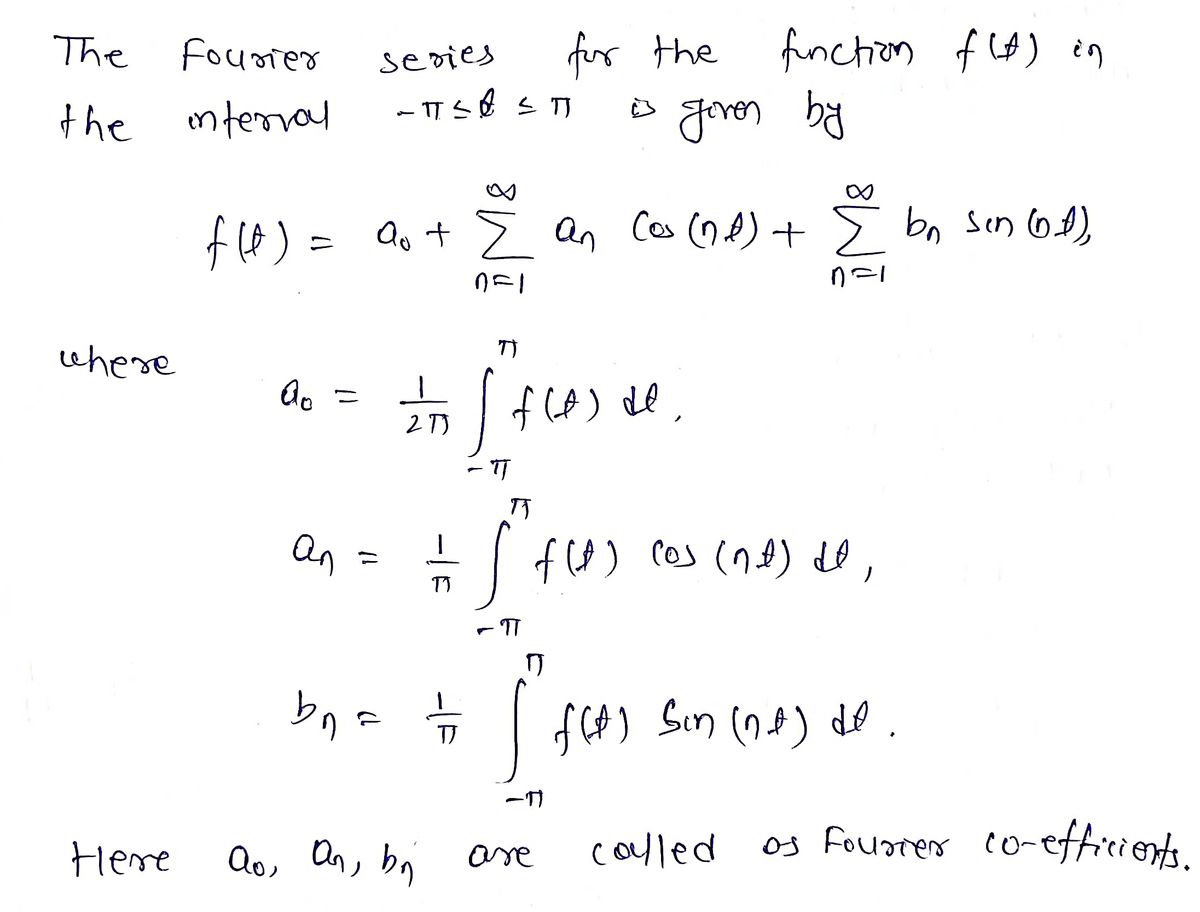 The Fourier series for the function f(t) in
the interval -π ≤ t ≤ π is given by
f(t) = a₀ + ∑_{n=1}^{∞} aₙ cos (nt) + ∑_{n=1}^{∞} bₙ sin (nt),
where
a₀ = 1/2π ∫_{-π}^{π} f(t) dt,
aₙ = 1/π ∫_{-π}^{π} f(t) cos (nt) dt,
bₙ = 1/π ∫_{-π}^{π} f(t) sin (nt) dt.
Here a₀, aₙ, bₙ are called as Fourier co-efficients.